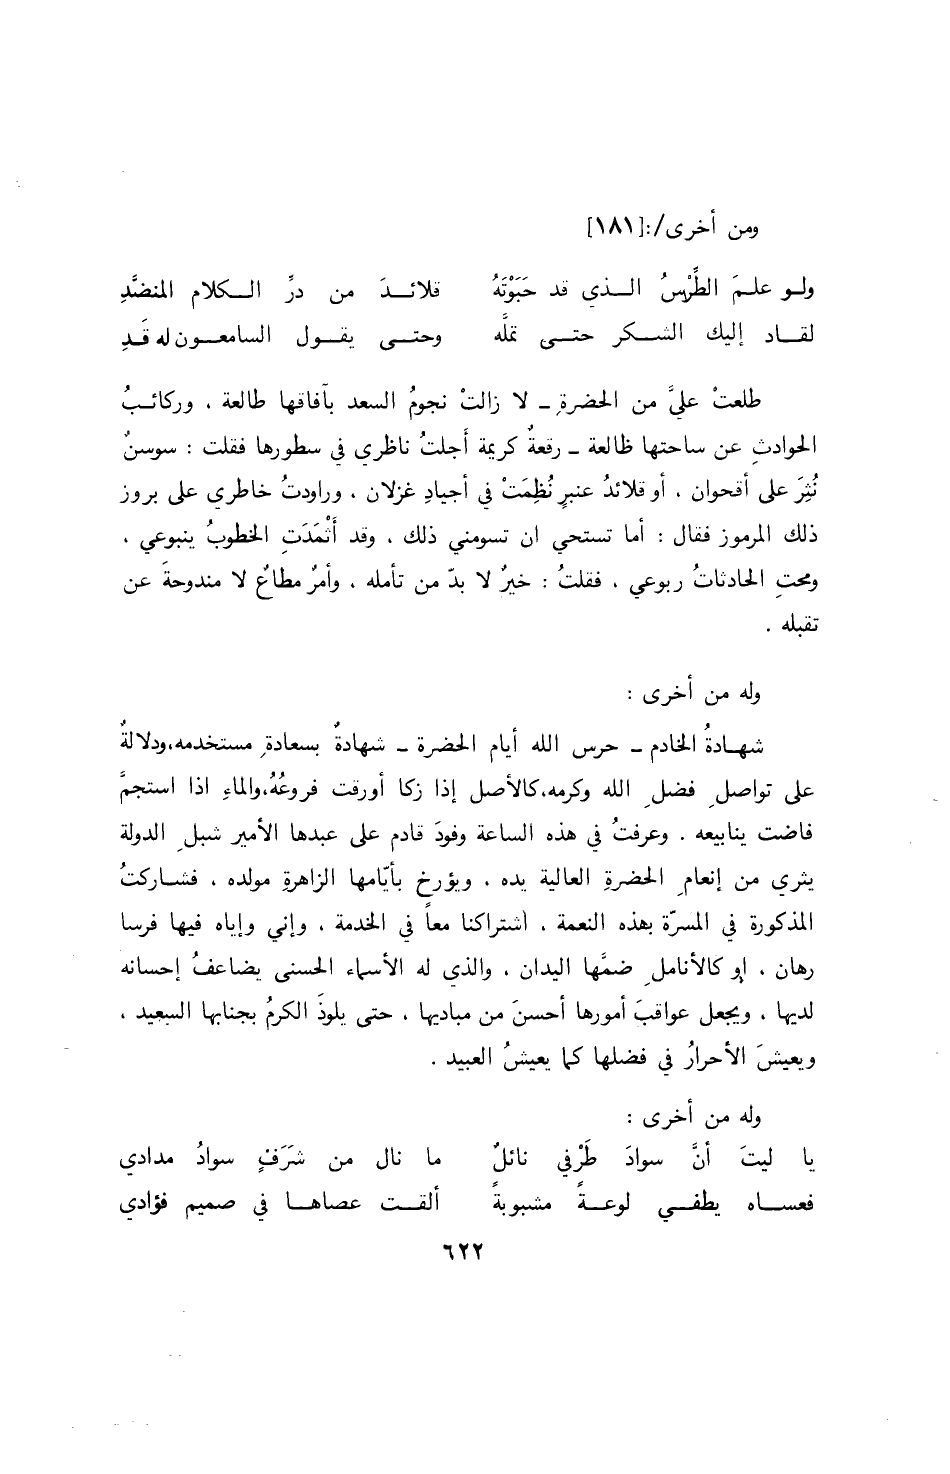 ومن أخرى/:[١٨١]
ولو علمَ الطِّرْسُ الذي قد حَبَوْتَهُ قلائدَ من درِّ الكلام المنضَّدِ
لقاد إليك الشكر حتى تملَّه وحتى يقول السامعون له قَدِ
طلعتْ عليَّ من الحضرةِ ـ لا زالتْ نجومُ السعد بآفاقها طالعة ، وركائبُ
الحوادثِ عن ساحتها ظالعة ـ رقعةٌ كريمة أجلتُ ناظري في سطورها فقلت : سوسنٌ
نُثِرَ على أقحوان ، أو قلائدُ عنبرٍ نُظِمَتْ في أجيادِ غزلان ، وراودتُ خاطري على بروز
ذلك المرموز فقال : أما تستحي ان تسومني ذلك ، وقد أثْمَدَتِ الخطوبُ ينبوعي ،
ومحتِ الحادثاتُ ربوعي ، فقلتُ : خيرٌ لا بدّ من تأمله ، وأمرٌ مطاعٌ لا مندوحةَ عن
تقبله .
وله من أخرى :
شهادةُ الخادم ـ حرس الله أيام الحضرة ـ شهادةٌ بسعادةِ مستخدمه،ودلالةٌ
على تواصلِ فضلِ الله وكرمه،كالأصل إذا زكا أورقت فروعُهُ،والماءِ اذا استجمَّ
فاضت ينابيعه . وعرفتُ في هذه الساعة وفودَ قادم على عبدها الأمير شبلِ الدولة
يثري من إنعامِ الحضرةِ العالية يده ، ويؤرخ بأيّامها الزاهرةِ مولده ، فشاركتُ
المذكورة في المسرّة بهذه النعمة ، اشتراكنا معاً في الخدمة ، وإني وإياه فيها فرسا
رهان ، او كالأناملِ ضمَّها اليدان ، والذي له الأسماء الحسنى يضاعفُ إحسانه
لديها ، ويجعل عواقبَ أمورها أحسنَ من مباديها ، حتى يلوذَ الكرمُ بجنابها السعيد ،
ويعيشَ الأحرارُ في فضلها كما يعيشُ العبيد .
وله من أخرى :
يا ليتَ أنَّ سوادَ طَرْفي نائلٌ ما نال من شَرَفٍ سوادُ مدادي
فعساه يطفي لوعةً مشبوبةً ألقت عصاها في صميم فؤادي
٦٢٢